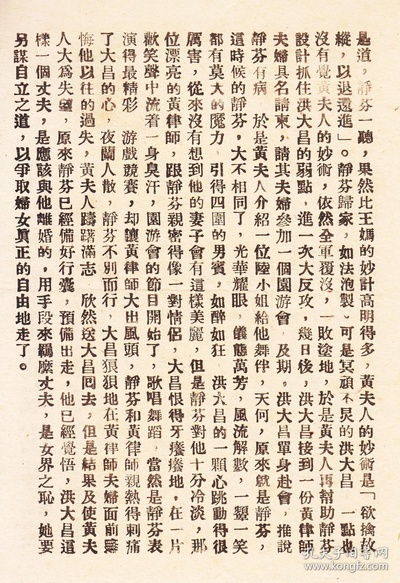 是道，靜芬一聽，果然比王媽的妙計高明得多，黃夫人的妙術是「欲擒故
縱，以退還進」。靜芬歸家，如法泡製。可是冥頑不炅的洪大昌，一點也
沒有覺黃夫人的妙術，依然全軍覆沒，一敗塗地，於是黃夫人再幫助靜芬
設計抓住洪大昌的弱點，進一次大反攻，幾日後，洪大昌接到一份黃律師
夫婦具名請柬，請其夫婦參加一個園游會，及期，洪大昌單身赴會，推說
靜芬有病，於是黃夫人介紹一位陸小姐給他舞伴，天何，原來就是靜芬，
這時候的靜芬，大不相同了，光華耀眼，儀態萬芳，風流解數，一顰一笑
都有莫大的魔力，引得四圍的男賓，如醉如狂，洪大昌的一顆心跳動得很
厲害，從來沒有想到他的妻子會有這樣美麗，但是靜芬對他十分冷淡，那
位漂亮的黃律師，跟靜芬親密得像一對情侶，大昌恨得牙癢癢地，在一片
歡笑聲中流着一身臭汗，園游會的節目開始了，歌唱舞蹈，當然是靜芬表
演得最精彩，游戲競賽，却讓黃律師大出風頭，靜芬和黃律師親熱得刺痛
了大昌的心，夜闌人散，靜芬不別而行，大昌狼狽地在黃律師夫婦面前懺
悔他以往的過失，黃夫人躊躇滿志，欣然送大昌囘去，但是結果及使黃夫
人大為失望，原來靜芬已經備好行囊，預備出走，他已經覺悟，洪大昌這
樣一個丈夫，是應該與他離婚的，用手段來羈縻丈夫，是女界之恥，她要
另謀自立之道，以爭取婦女眞正的自由地走了。
孔夫子旧书网
www.kongfz.com